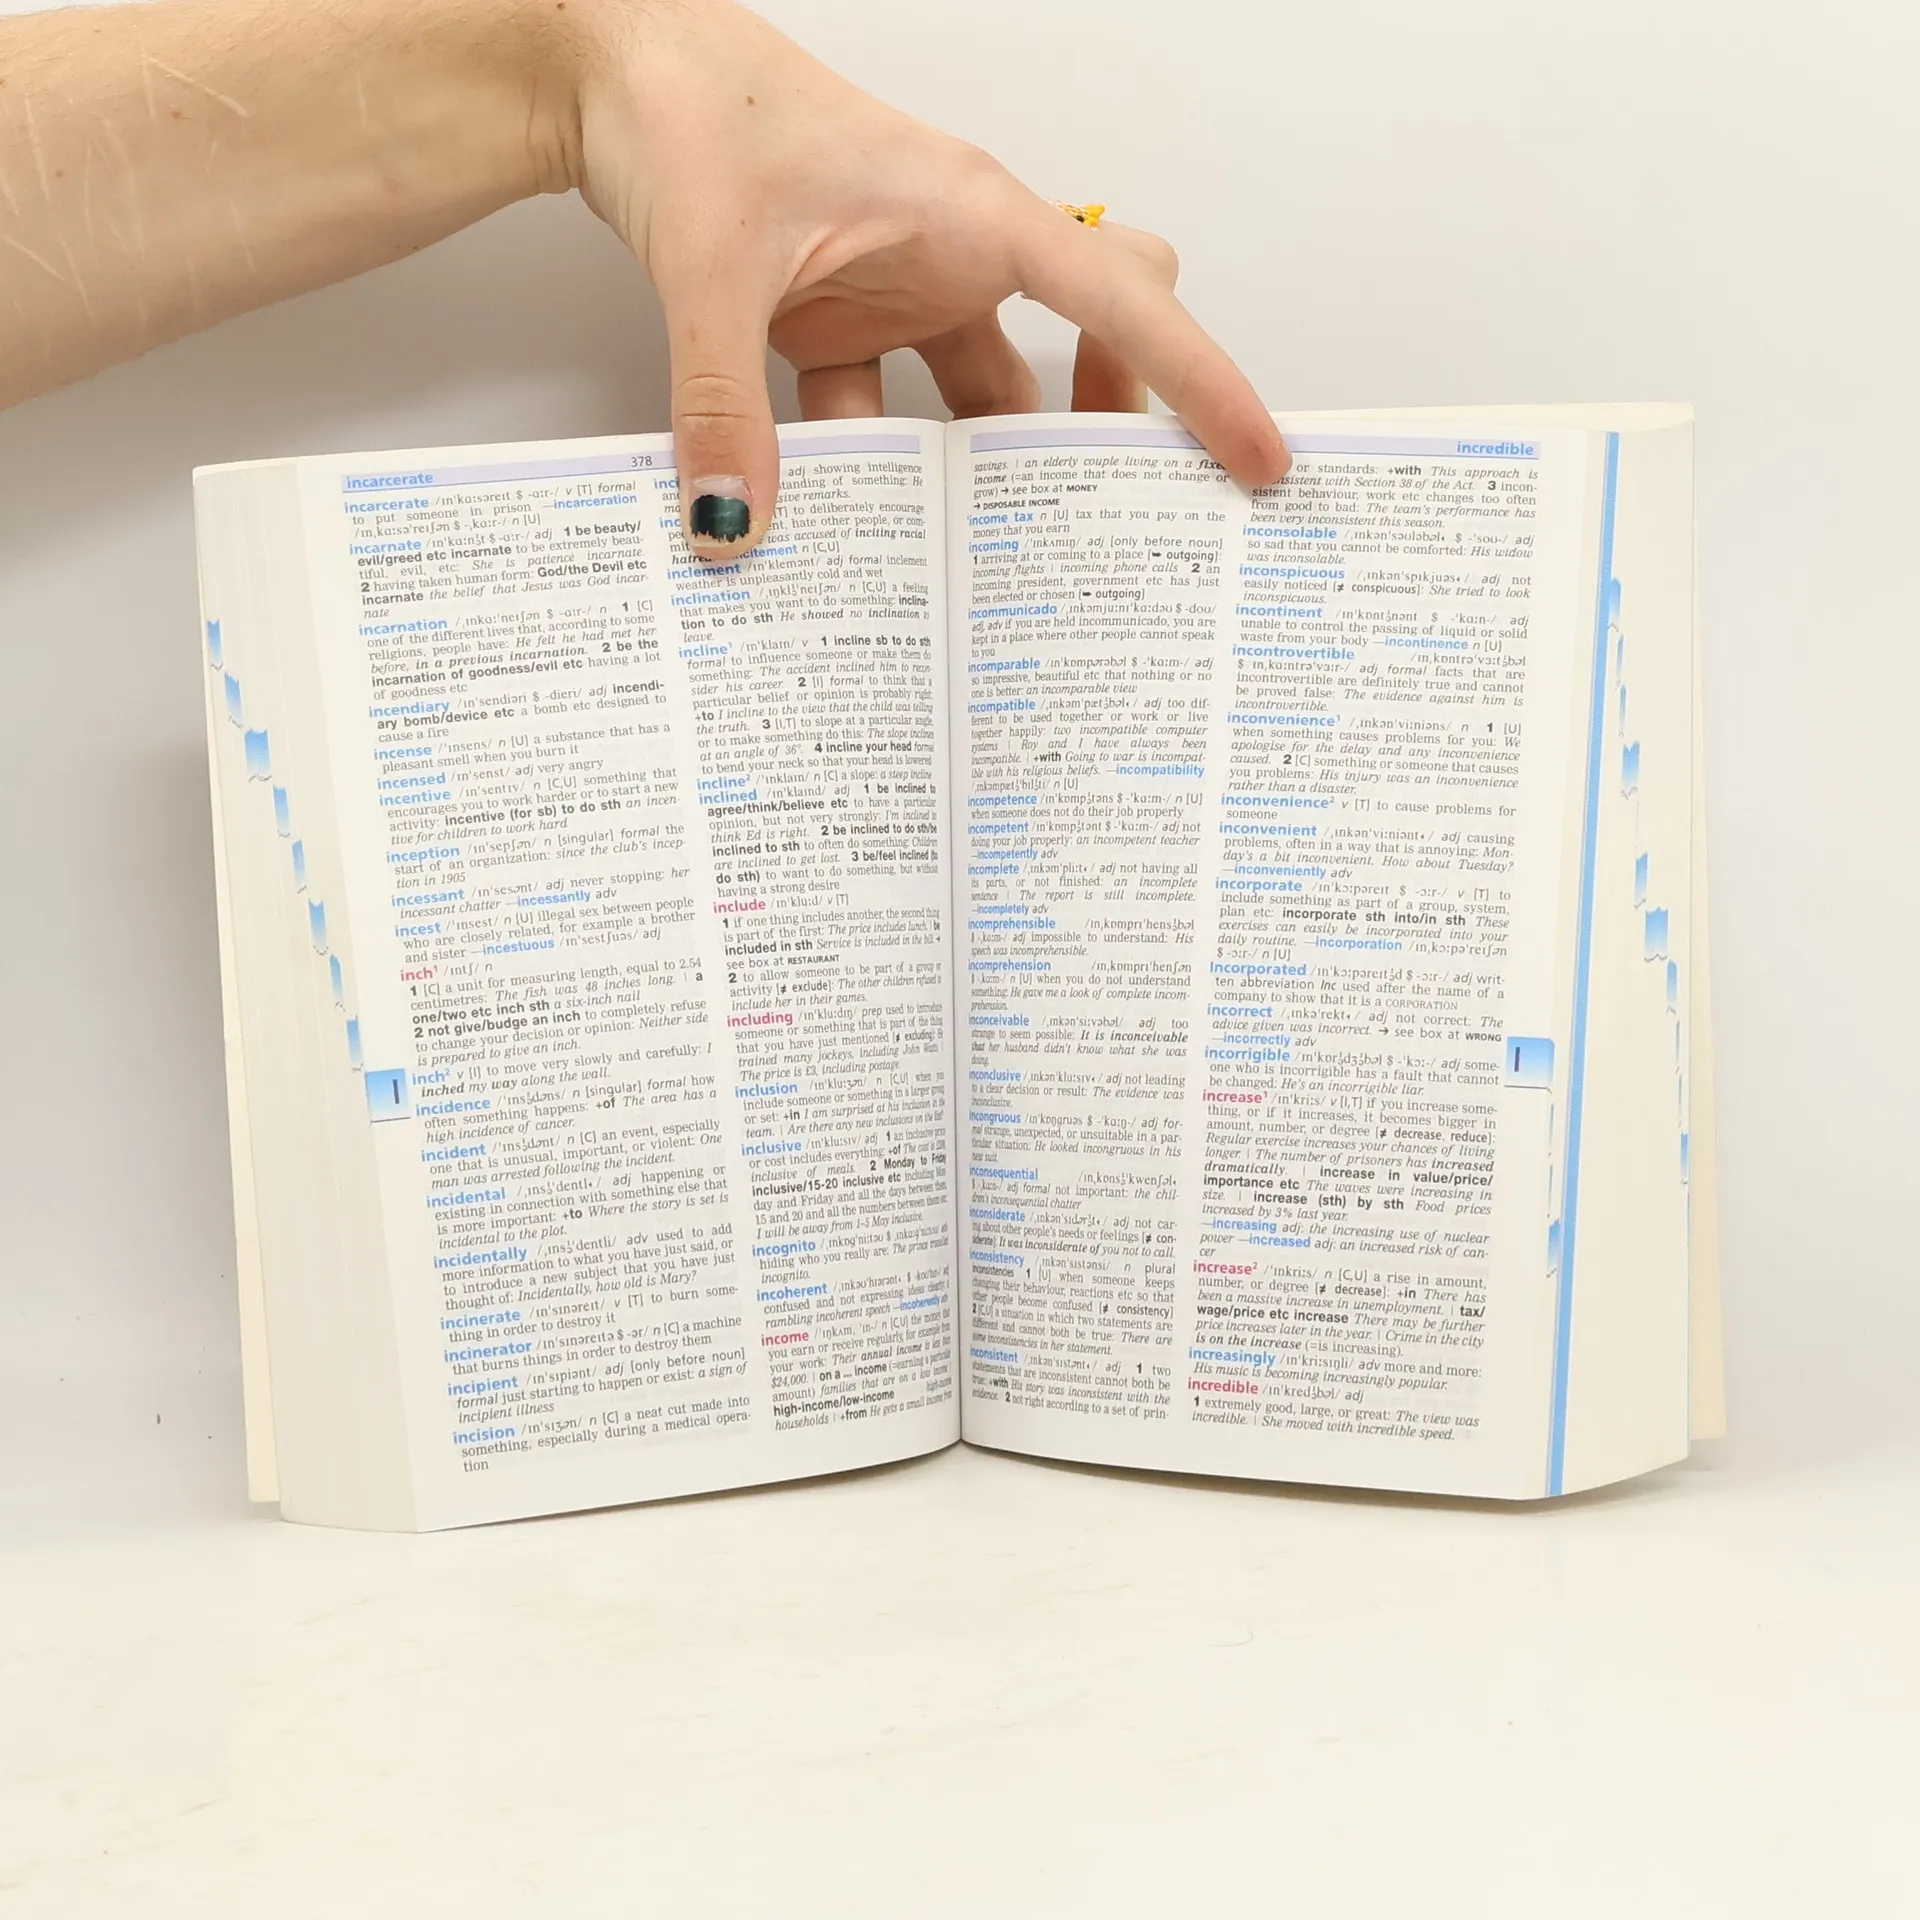 incarcerate
378
incarcerate /ɪnˈkɑːsəreɪt $ -ɑːr-/ v [T] formal
to put someone in prison —incarceration
/ɪnˌkɑːsəˈreɪʃən $ -ˌkɑːr-/ n [U]
incarnate /ɪnˈkɑːnət $ -ɑːr-/ adj 1 be beauty/
evil/greed etc incarnate to be extremely beau-
tiful, evil, etc: She is patience incarnate.
2 having taken human form: God/the Devil etc
incarnate the belief that Jesus was God incar-
nate
incarnation /ˌɪnkɑːˈneɪʃən $ -ɑːr-/ n 1 [C]
one of the different lives that, according to some
religions, people have: He felt he had met her
before, in a previous incarnation. 2 be the
incarnation of goodness/evil etc having a lot
of goodness etc
incendiary /ɪnˈsendiəri $ -dieri/ adj incendi-
ary bomb/device etc a bomb etc designed to
cause a fire
incense /ˈɪnsens/ n [U] a substance that has a
pleasant smell when you burn it
incensed /ɪnˈsenst/ adj very angry
incentive /ɪnˈsentɪv/ n [C,U] something that
encourages you to work harder or to start a new
activity: incentive (for sb) to do sth an incen-
tive for children to work hard
inception /ɪnˈsepʃən/ n [singular] formal the
start of an organization: since the club's incep-
tion in 1905
incessant /ɪnˈsesənt/ adj never stopping: her
incessant chatter —incessantly adv
incest /ˈɪnsest/ n [U] illegal sex between people
who are closely related, for example a brother
and sister —incestuous /ɪnˈsestʃuəs/ adj
inch¹ /ɪntʃ/ n
1 [C] a unit for measuring length, equal to 2.54
centimetres: The fish was 48 inches long. | a
one/two etc inch sth a six-inch nail
2 not give/budge an inch to completely refuse
to change your decision or opinion: Neither side
is prepared to give an inch.
inch² v [I] to move very slowly and carefully: I
inched my way along the wall.
incidence /ˈɪnsɪ̇dəns/ n [singular] formal how
often something happens: +of The area has a
high incidence of cancer.
incident /ˈɪnsɪ̇dənt/ n [C] an event, especially
one that is unusual, important, or violent: One
man was arrested following the incident.
incidental /ˌɪnsɪ̇ˈdentl◂/ adj happening or
existing in connection with something else that
is more important: +to Where the story is set is
incidental to the plot.
incidentally /ˌɪnsɪ̇ˈdentli/ adv used to add
more information to what you have just said, or
to introduce a new subject that you have just
thought of: Incidentally, how old is Mary?
incinerate /ɪnˈsɪnəreɪt/ v [T] to burn some-
thing in order to destroy it
incinerator /ɪnˈsɪnəreɪtə $ -ər/ n [C] a machine
that burns things in order to destroy them
incipient /ɪnˈsɪpiənt/ adj [only before noun]
formal just starting to happen or exist: a sign of
incipient illness
incision /ɪnˈsɪʒən/ n [C] a neat cut made into
something, especially during a medical opera-
tion
I
adj showing intelligence
and of something: He
remarks.
[T] to deliberately encourage
hate other people, or com-
mit was accused of inciting racial
hatred n [C,U]
inclement /ɪnˈklemənt/ adj formal inclement
weather is unpleasantly cold and wet
inclination /ˌɪnklɪ̇ˈneɪʃən/ n [C,U] a feeling
that makes you want to do something: inclina-
tion to do sth He showed no inclination to
leave.
incline¹ /ɪnˈklaɪn/ v 1 incline sb to do sth
formal to influence someone or make them do
something: The accident inclined him to recon-
sider his career. 2 [I] formal to think that a
particular belief or opinion is probably right:
+to I incline to the view that the child was telling
the truth. 3 [I,T] to slope at a particular angle,
or to make something do this: The slope inclines
at an angle of 36°. 4 incline your head formal
to bend your neck so that your head is lowered
incline² /ˈɪnklaɪn/ n [C] a slope: a steep incline
inclined /ɪnˈklaɪnd/ adj 1 be inclined to
agree/think/believe etc to have a particular
opinion, but not very strongly: I'm inclined to
think Ed is right. 2 be inclined to do sth/be
inclined to sth to often do something: Children
are inclined to get lost. 3 be/feel inclined (to
do sth) to want to do something, but without
having a strong desire
include /ɪnˈkluːd/ v [T]
1 if one thing includes another, the second thing
is part of the first: The price includes lunch. | be
included in sth Service is included in the bill. →
see box at RESTAURANT
2 to allow someone to be part of a group or
activity [≠ exclude]: The other children refused to
include her in their games.
including /ɪnˈkluːdɪŋ/ prep used to introduce
someone or something that is part of the thing
that you have just mentioned [≠ excluding]: He
trained many jockeys, including John Watts |
The price is £3, including postage.
inclusion /ɪnˈkluːʒən/ n [C,U] when you
include someone or something in a larger group
or set: +in I am surprised at his inclusion in the
team. | Are there any new inclusions on the list?
inclusive /ɪnˈkluːsɪv/ adj 1 an inclusive price
or cost includes everything: +of The cost is
inclusive of meals. 2 Monday to Friday
inclusive/15-20 inclusive etc including Mon-
day and Friday and all the days between them,
15 and 20 and all the numbers between them etc:
I will be away from 1–5 May inclusive.
incognito /ˌɪnkɒɡˈniːtəʊ $ / adv
hiding who you really are: The prince travelled
incognito.
incoherent /ˌɪnkəʊˈhɪərənt◂ $ / adj
confused and not expressing ideas clearly: a
rambling incoherent speech —incoherently adv
income /ˈɪŋkʌm, ˈɪn-/ n [C,U] the money that
you earn or receive regularly, for example from
your work: Their annual income is less than
$24,000. | on a ... income (=earning a particular
amount) families that are on a low income |
high-income/low-income
households | +from He gets a small income from
incredible
savings. | an elderly couple living on a fixed
income (=an income that does not change or
grow) → see box at MONEY
→ DISPOSABLE INCOME
ˈincome tax n [U] tax that you pay on the
money that you earn
incoming /ˈɪnkʌmɪŋ/ adj [only before noun]
1 arriving at or coming to a place [➡ outgoing]:
incoming flights | incoming phone calls 2 an
incoming president, government etc has just
been elected or chosen [➡ outgoing]
incommunicado /ˌɪnkəmjuːnɪˈkɑːdəʊ $ -doʊ/
adj, adv if you are held incommunicado, you are
kept in a place where other people cannot speak
to you
incomparable /ɪnˈkɒmpərəbəl $ -ˈkɑːm-/ adj
so impressive, beautiful etc that nothing or no
one is better: an incomparable view
incompatible /ˌɪnkəmˈpætɪ̇bəl◂/ adj too dif-
ferent to be used together or work or live
together happily: two incompatible computer
systems | Roy and I have always been
incompatible. | +with Going to war is incompat-
ible with his religious beliefs. —incompatibility
/ˌɪnkəmpætɪ̇ˈbɪlɪ̇ti/ n [U]
incompetence /ɪnˈkɒmpɪ̇təns $ -ˈkɑːm-/ n [U]
when someone does not do their job properly
incompetent /ɪnˈkɒmpɪ̇tənt $ -ˈkɑːm-/ adj not
doing your job properly: an incompetent teacher
—incompetently adv
incomplete /ˌɪnkəmˈpliːt◂/ adj not having all
its parts, or not finished: an incomplete
sentence | The report is still incomplete.
—incompletely adv
incomprehensible /ɪnˌkɒmprɪˈhensɪ̇bəl
$ -ˌkɑːm-/ adj impossible to understand: His
speech was incomprehensible.
incomprehension /ɪnˌkɒmprɪˈhenʃən
$ -ˌkɑːm-/ n [U] when you do not understand
something: He gave me a look of complete incom-
prehension.
inconceivable /ˌɪnkənˈsiːvəbəl/ adj too
strange to seem possible: It is inconceivable
that her husband didn't know what she was
doing.
inconclusive /ˌɪnkənˈkluːsɪv◂/ adj not leading
to a clear decision or result: The evidence was
inconclusive.
incongruous /ɪnˈkɒŋɡruəs $ -ˈkɑːŋ-/ adj for-
mal strange, unexpected, or unsuitable in a par-
ticular situation: He looked incongruous in his
new suit.
inconsequential /ɪnˌkɒnsɪ̇ˈkwenʃəl◂
$ -ˌkɑːn-/ adj formal not important: the chil-
dren's inconsequential chatter
inconsiderate /ˌɪnkənˈsɪdərɪ̇t◂/ adj not car-
ing about other people's needs or feelings [≠ con-
siderate]: It was inconsiderate of you not to call.
inconsistency /ˌɪnkənˈsɪstənsi/ n plural
inconsistencies 1 [U] when someone keeps
changing their behaviour, reactions etc so that
other people become confused [≠ consistency]
2 [C,U] a situation in which two statements are
different and cannot both be true: There are
some inconsistencies in her statement.
inconsistent /ˌɪnkənˈsɪstənt◂/ adj 1 two
statements that are inconsistent cannot both be
true: +with His story was inconsistent with the
evidence. 2 not right according to a set of prin-
or standards: +with This approach is
inconsistent with Section 38 of the Act. 3 incon-
sistent behaviour, work etc changes too often
from good to bad: The team's performance has
been very inconsistent this season.
inconsolable /ˌɪnkənˈsəʊləbəl◂ $ -ˈsoʊ-/ adj
so sad that you cannot be comforted: His widow
was inconsolable.
inconspicuous /ˌɪnkənˈspɪkjuəs◂/ adj not
easily noticed [≠ conspicuous]: She tried to look
inconspicuous.
incontinent /ɪnˈkɒntɪ̇nənt $ -ˈkɑːn-/ adj
unable to control the passing of liquid or solid
waste from your body —incontinence n [U]
incontrovertible /ɪnˌkɒntrəˈvɜːtɪ̇bəl
$ ɪnˌkɑːntrəˈvɜːr-/ adj formal facts that are
incontrovertible are definitely true and cannot
be proved false: The evidence against him is
incontrovertible.
inconvenience¹ /ˌɪnkənˈviːniəns/ n 1 [U]
when something causes problems for you: We
apologise for the delay and any inconvenience
caused. 2 [C] something or someone that causes
you problems: His injury was an inconvenience
rather than a disaster.
inconvenience² v [T] to cause problems for
someone
inconvenient /ˌɪnkənˈviːniənt◂/ adj causing
problems, often in a way that is annoying: Mon-
day's a bit inconvenient. How about Tuesday?
—inconveniently adv
incorporate /ɪnˈkɔːpəreɪt $ -ɔːr-/ v [T] to
include something as part of a group, system,
plan etc: incorporate sth into/in sth These
exercises can easily be incorporated into your
daily routine. —incorporation /ɪnˌkɔːpəˈreɪʃən
$ -ɔːr-/ n [U]
Incorporated /ɪnˈkɔːpəreɪtɪ̇d $ -ɔːr-/ adj writ-
ten abbreviation Inc used after the name of a
company to show that it is a CORPORATION
incorrect /ˌɪnkəˈrekt◂/ adj not correct: The
advice given was incorrect. → see box at WRONG
—incorrectly adv
incorrigible /ɪnˈkɒrɪ̇dʒɪ̇bəl $ -ˈkɔː-/ adj some-
one who is incorrigible has a fault that cannot
be changed: He's an incorrigible liar.
increase¹ /ɪnˈkriːs/ v [I,T] if you increase some-
thing, or if it increases, it becomes bigger in
amount, number, or degree [≠ decrease, reduce]:
Regular exercise increases your chances of living
longer. | The number of prisoners has increased
dramatically. | increase in value/price/
importance etc The waves were increasing in
size. | increase (sth) by sth Food prices
increased by 3% last year.
—increasing adj: the increasing use of nuclear
power —increased adj: an increased risk of can-
cer
increase² /ˈɪnkriːs/ n [C,U] a rise in amount,
number, or degree [≠ decrease]: +in There has
been a massive increase in unemployment. | tax/
wage/price etc increase There may be further
price increases later in the year. | Crime in the city
is on the increase (=is increasing).
increasingly /ɪnˈkriːsɪŋli/ adv more and more:
His music is becoming increasingly popular.
incredible /ɪnˈkredɪ̇bəl/ adj
1 extremely good, large, or great: The view was
incredible. | She moved with incredible speed.
I